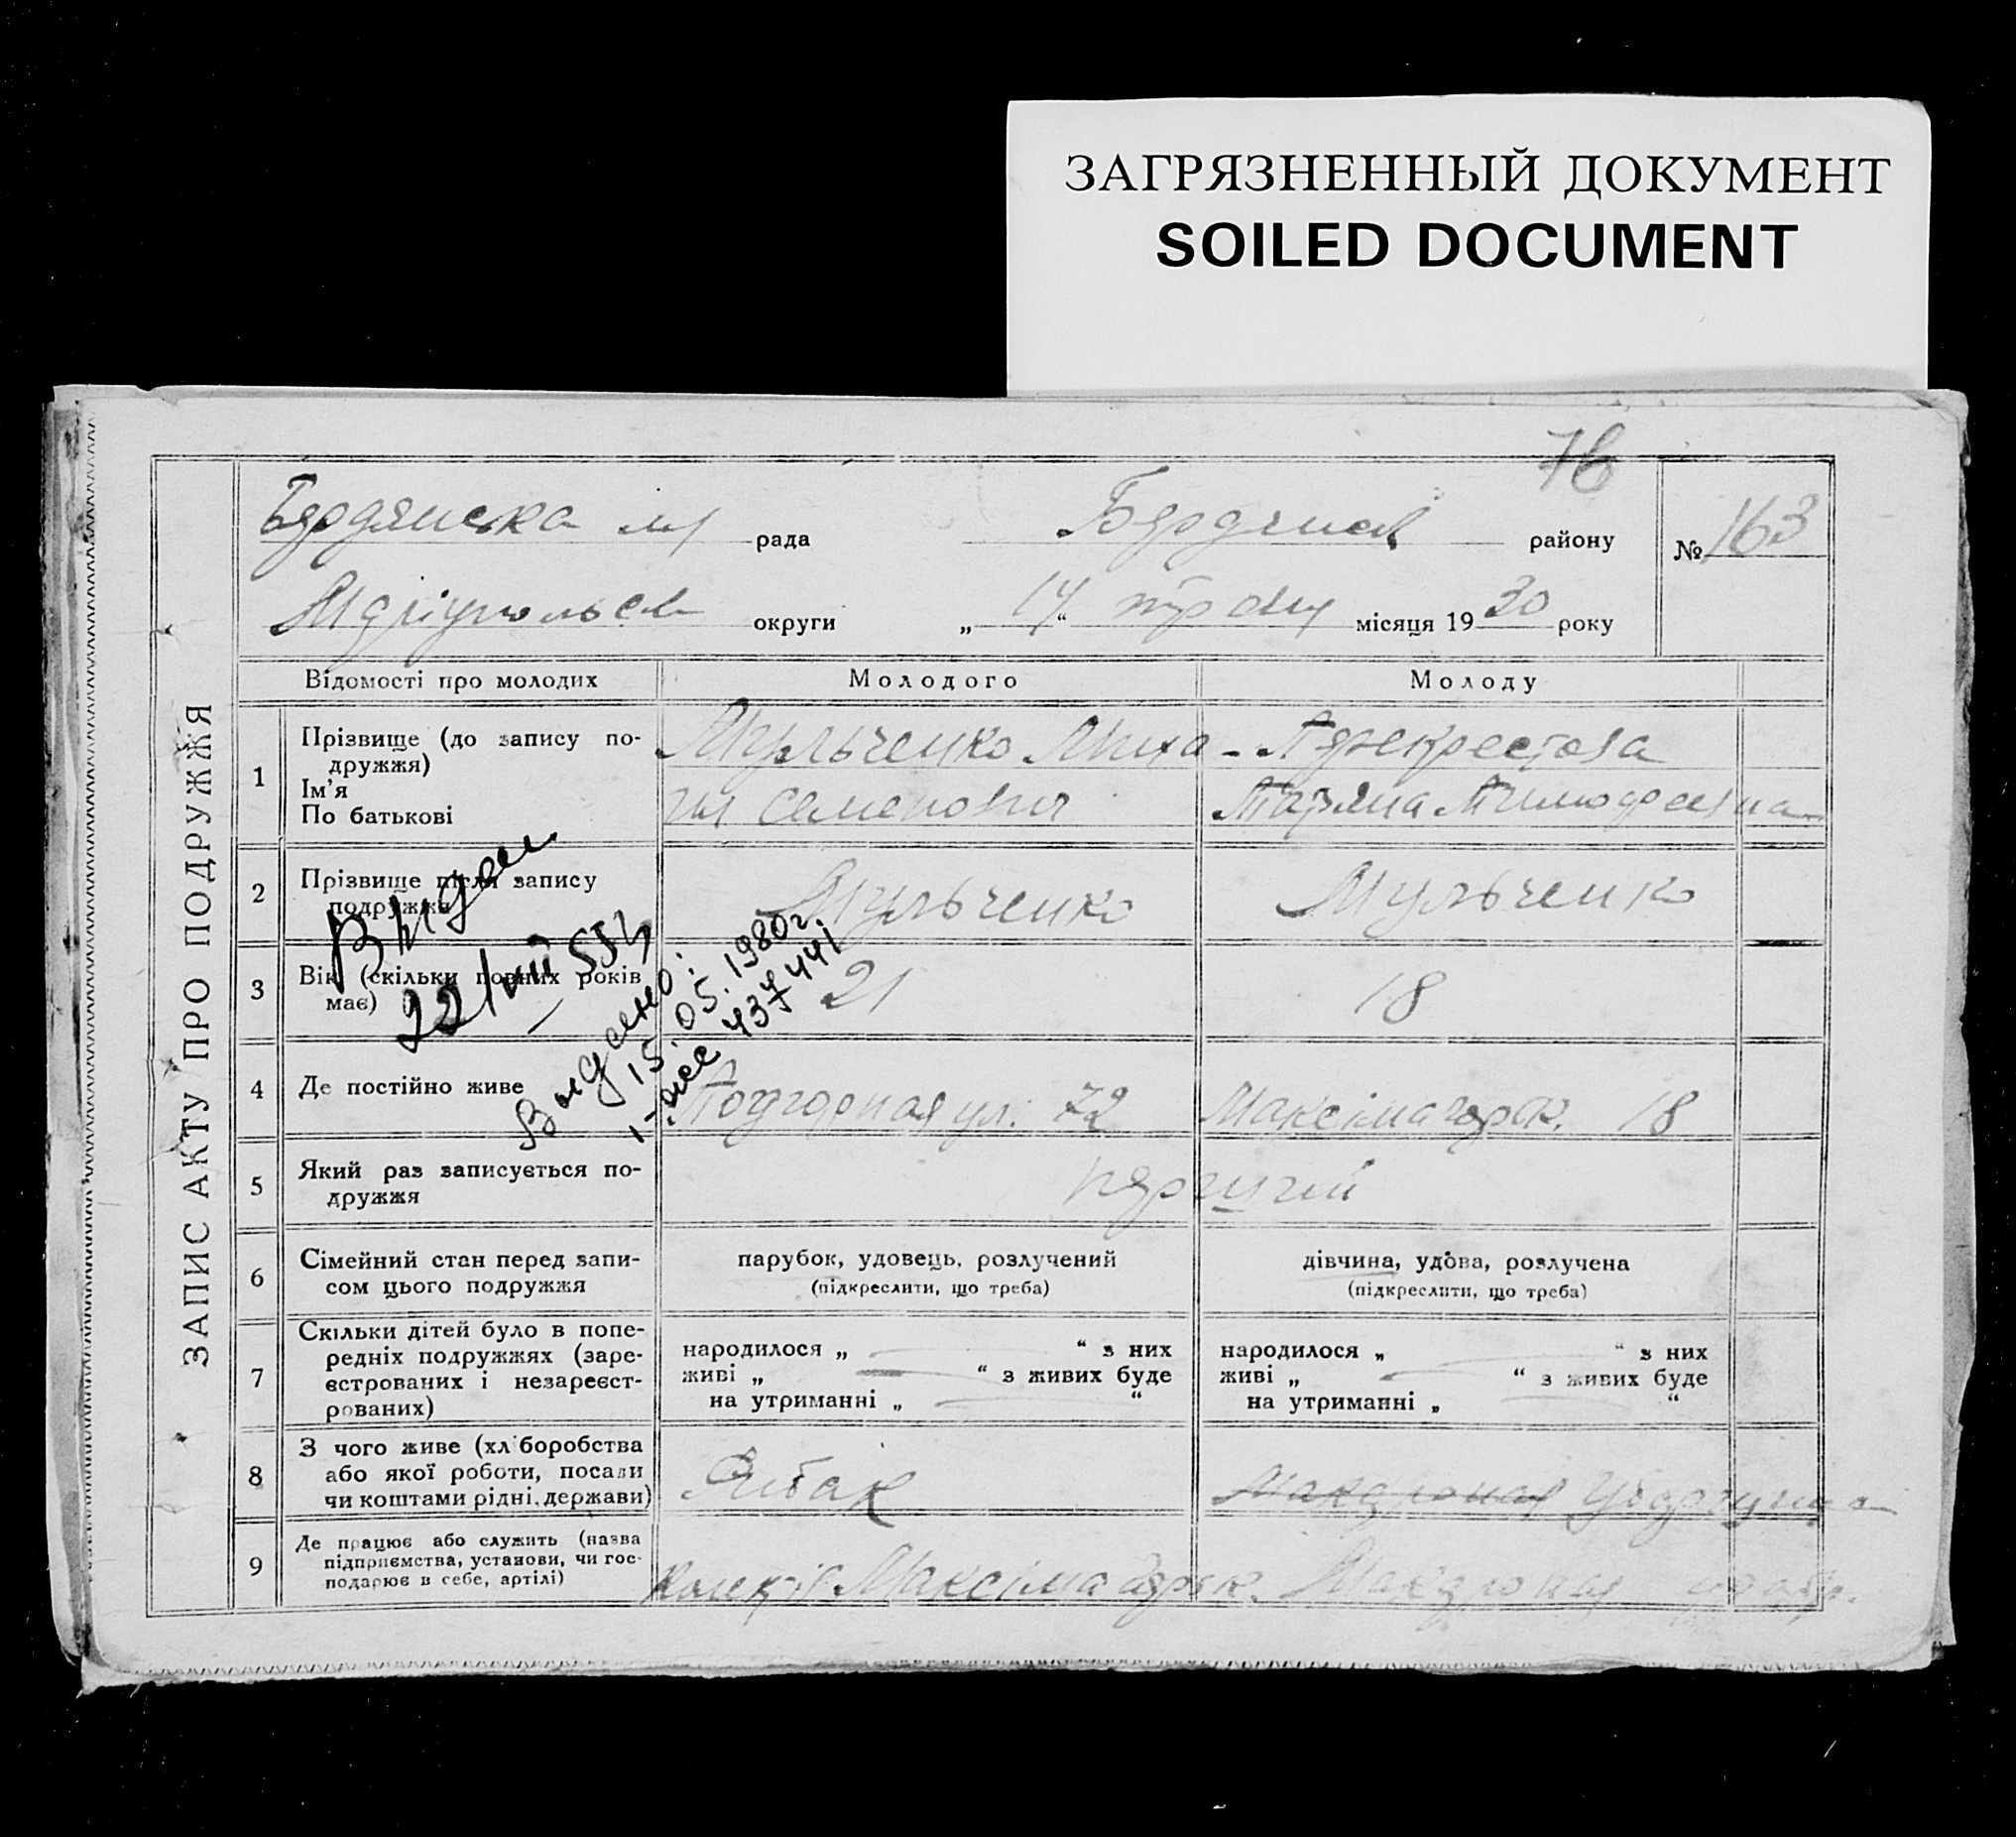 ЗАГРЯЗНЕННЫЙ ДОКУМЕНТ
SOILED DOCUMENT
76
Бердянска м/ рада Бердянск району № 163
Маріупольск округи „ 14 “ місяця 19 30 року
ЗАПИС АКТУ ПРО ПОДРУЖЖЯ
Відомості про молодих Молодого Молоду
1 Прізвище (до запису по-
дружжя)
Ім’я
По батькові
Мульченко Миха-
ил Семенович
Перекрестова
Тимофеевна
2 Прізвище після запису
подружжя
Мульченко Мульченко
3 Вік (скільки повних років
має)
21 18
4 Де постійно живе
Подгорная ул. 72 Максіма горк. 18
5 Який раз записується по-
дружжя
перший
6 Сімейний стан перед запи-
сом цього подружжя
парубок, удовець, розлучений
(підкреслити, що треба)
дівчина, удова, розлучена
(підкреслити, що треба)
7 Скільки дітей було в попе-
редніх подружжях (заре-
єстрованих і незареєст-
рованих)
народилося „ “ з них
живі „ “ з живих буде
на утриманні „ “
народилося „ “ з них
живі „ “ з живих буде
на утриманні „ “
8 З чого живе (хліборобства
або якої роботи, посади
чи коштами рідні, держави)
Рибак
9 Де працює або служить (назва
підприємства, установи, чи гос-
подарює в себе, артілі)
Максіма Горк.
Выдан
22/VIII 55г
Выдано:
15.05.1980г.
437441